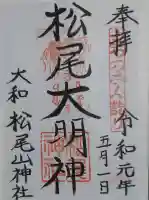 奉拝
令和元年
五月一日
松尾大明神
大和 松尾山神社